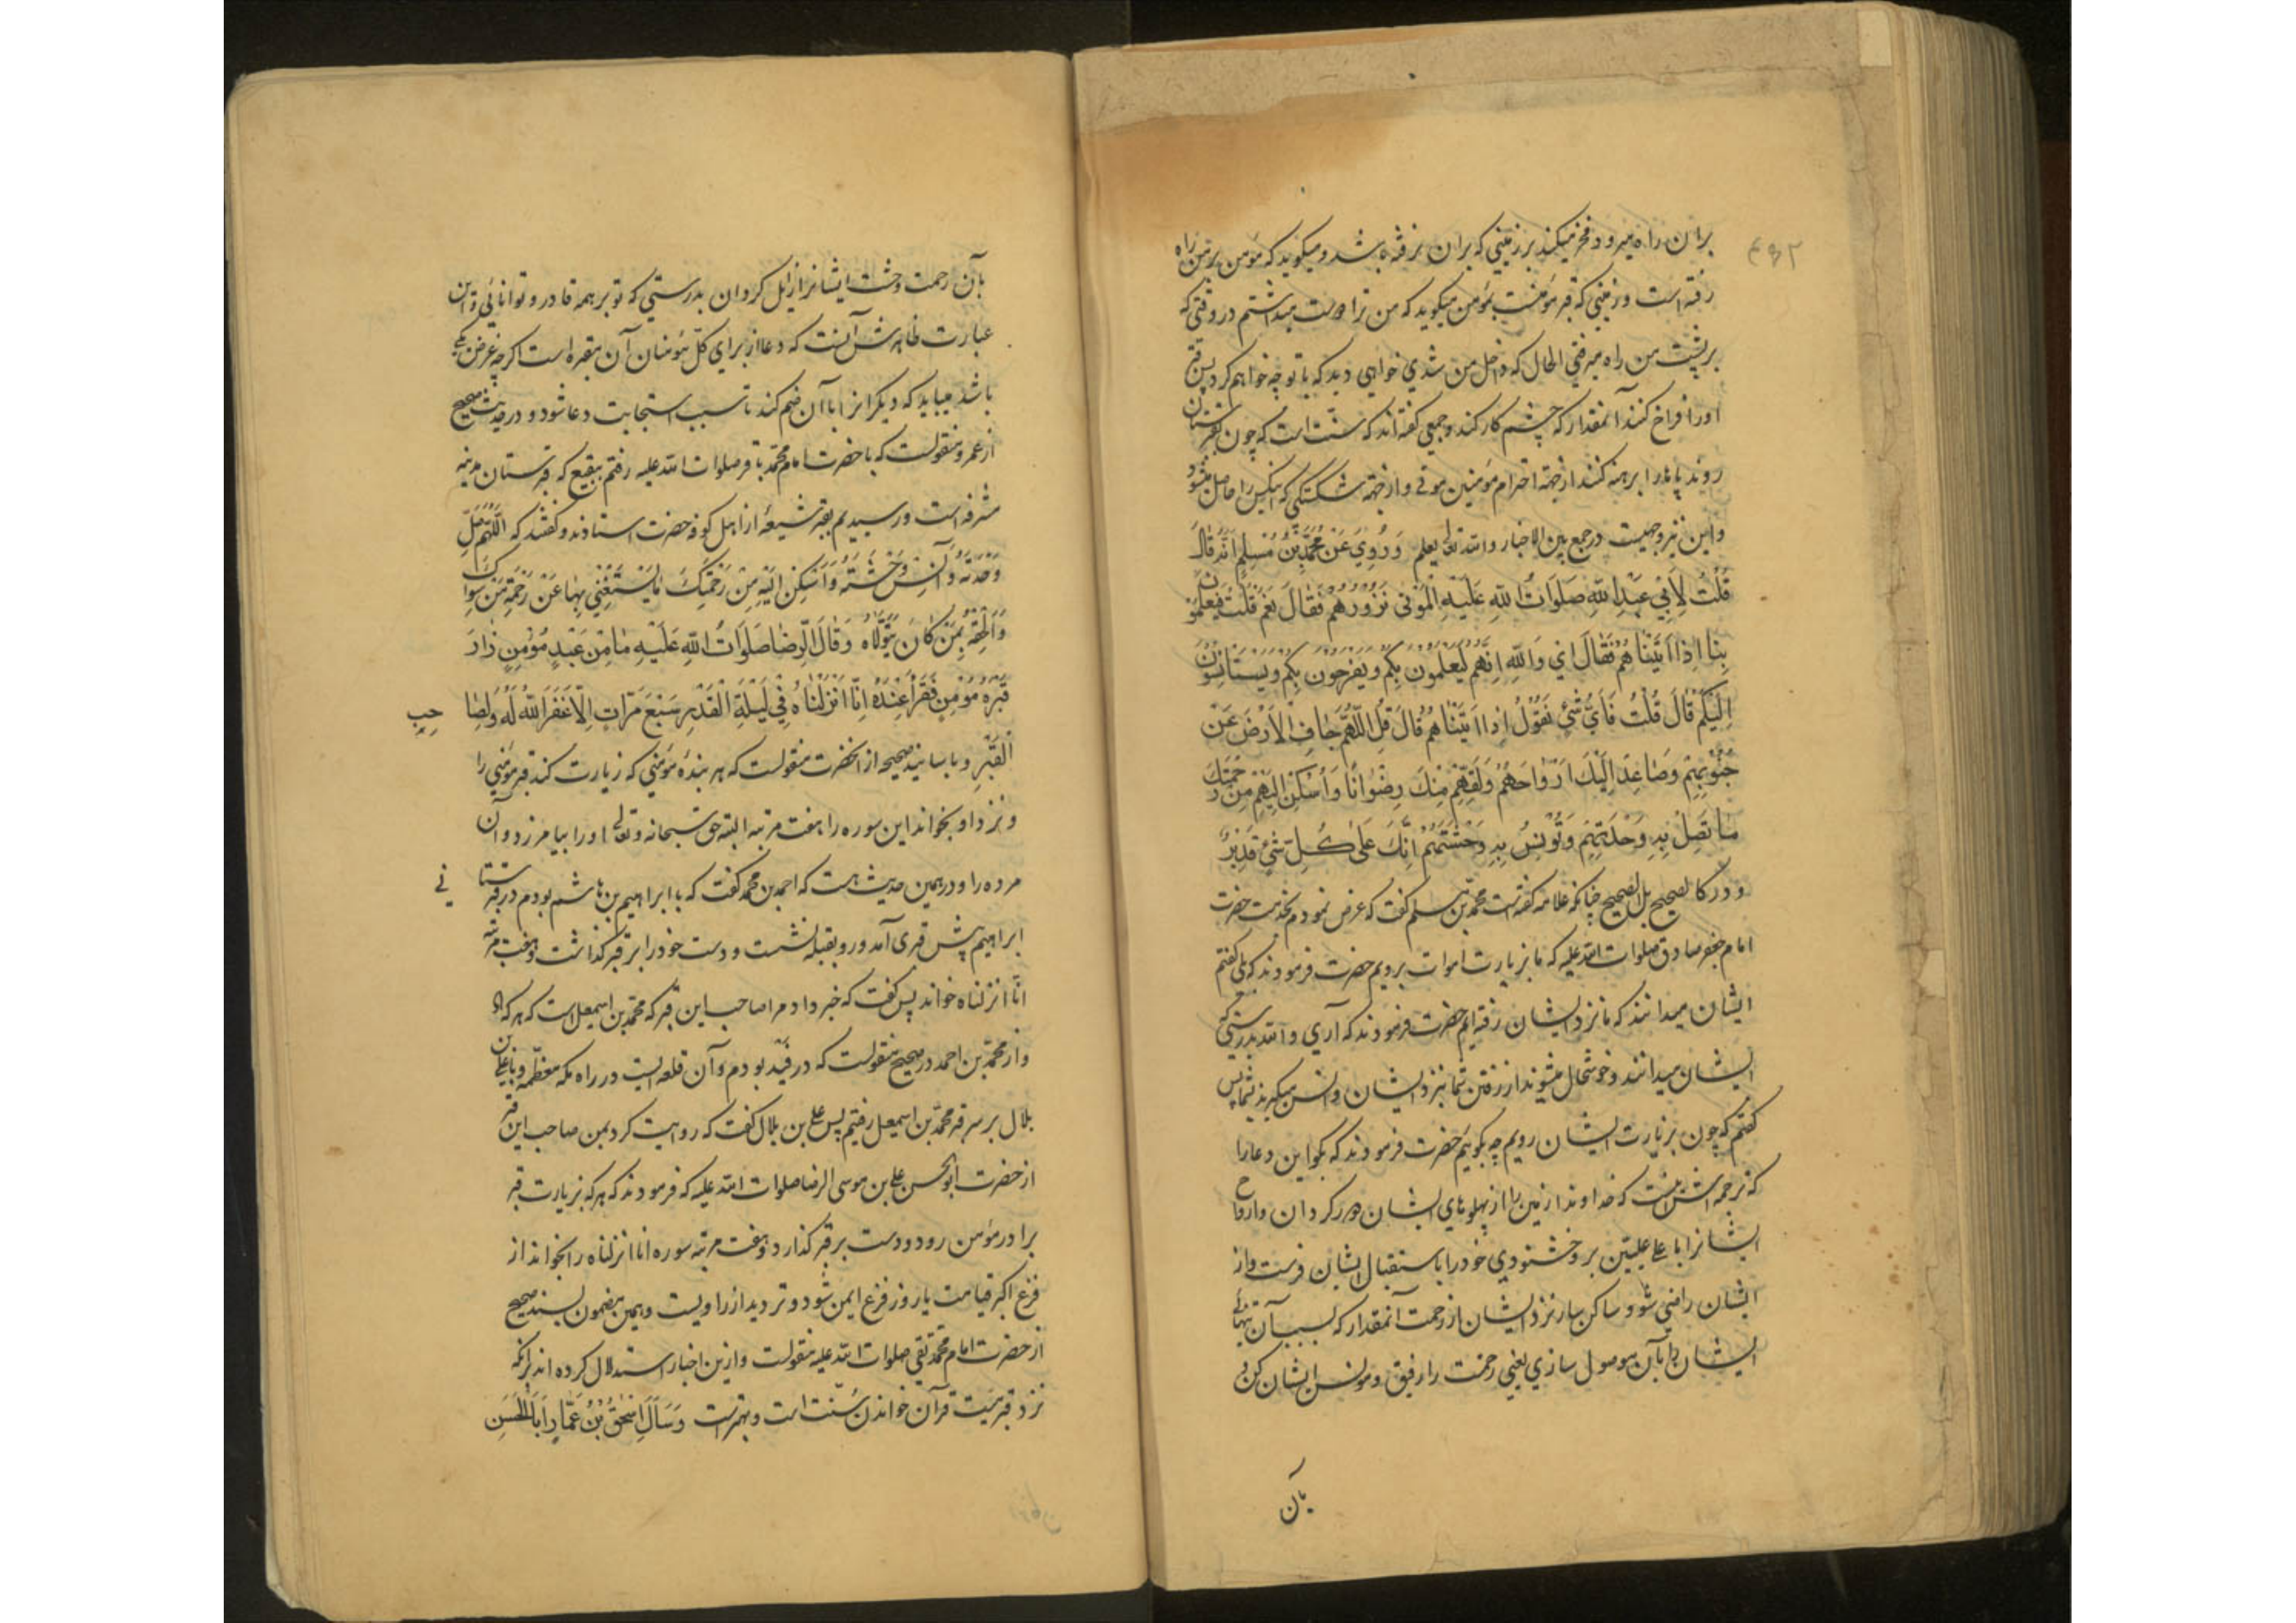 بران راه میرود و فخر میکند بر زمینی که بران نرفته باشد و میکوید که مؤمن بر من راه
رفته است و زمینی که قبر مؤمنست بمؤمن میکوید که من ترا دوست میداشتم در وقتی که
بر پشت من راه میرفتی الحال که داخل من شدی خواهی دید که با تو چه خواهم کرد پس قبر
اورا فراخ کند آنمقدار که چشم کار کند و جمعی کفته اند که سنت است که چون بقبرستان
روند پاها را برهنه کنند از جهة احترام مؤمنین موتی و از جهة شکستکی که نیکس را حاصل میشود
و این نیز وجهیست در جمع بین الاخبار والله تعالی یعلم وَرُوِيَ عَنْ مُحَمَّدِ بْنِ مُسْلِمٍ اَنَّهُ قَالَ
قُلْتُ لِاَبِي عَبْدِ اللّٰهِ صَلَوَاتُ اللّٰهِ عَلَيْهِ الْمَوْتٰى نَزُورُهُمْ فَقَالَ نَعَمْ قُلْتُ فَيَعْلَمُونَ
بِنَا اِذَا اَتَيْنَاهُمْ فَقَالَ اِي وَاللّٰهِ اِنَّهُمْ لَيَعْلَمُونَ بِكُمْ وَيَفْرَحُونَ بِكُمْ وَيَسْتَأْنِسُونَ
اِلَيْكُمْ قَالَ قُلْتُ فَاَيُّ شَيْءٍ نَقُولُ اِذَا اَتَيْنَاهُمْ قَالَ قُلِ اللّٰهُمَّ جَافِ الْاَرْضَ عَنْ
جُنُوبِهِمْ وَصَاعِدْ اِلَيْكَ اَرْوَاحَهُمْ وَلَقِّهِمْ مِنْكَ رِضْوَانًا وَاَسْكِنْ اِلَيْهِمْ مِنْ رَحْمَتِكَ
مَا تَصِلُ بِهِ وَحْدَتَهُمْ وَتُونِسُ بِهِ وَحْشَتَهُمْ اِنَّكَ عَلٰى كُلِّ شَيْءٍ قَدِيرٌ
و در کالصحیح بل الصحیح چنانکه علامه کفته است محمد بن مسلم کفت که عرض نمودم بخدمت حضرت
امام جعفر صادق صلوات الله علیه که ما بزیارت اموات برویم حضرت فرمودند که بلی کفتم
ایشان میدانند که ما نزد ایشان رفته ایم حضرت فرمودند که آری والله بدرستی که
ایشان میدانند و خوشحال میشوند از رفتن شما بنزد ایشان و انس میکیرند بشما پس
کفتم که چون بزیارت ایشان رویم چه بکوئیم حضرت فرمودند که بکو این دعا را
که ترجمه اش اینست که خداوندا زمین را از پهلوهای ایشان دور کردان و ارواح
ایشانرا باعلی علیین بر و خشنودی خود را باستقبال ایشان فرست و از
ایشان راضی شو و ساکن ساز نزد ایشان از رحمت آنمقدار که بسبب آن تنهائی
ایشان را بآن موصول سازی یعنی رحمت را رفیق و مونس ایشان کن و
بآن
بآن رحمت وحشت ایشانرا زایل کردان بدرستی که تو بر همه قادر و توانائی و این
عبارت ظاهرش آنست که دعا از برای کل مؤمنان آن مقبره است اکر چه غرض یکی
باشد میباید که دیکرانرا باآن ضم کند تا سبب استجابت دعا شود و در حدیث صحیح
از عمرو منقولست که با حضرت امام محمد باقر صلوات الله علیه رفتم ببقیع که قبرستان مدینه
مشرفه است و رسیدیم بقبر شیعۀ از اهل کوفه حضرت استادند و کفتند که اَللّٰهُمَّ صِلْ
وَحْدَتَهُ وَآنِسْ وَحْشَتَهُ وَاَسْكِنْ اِلَيْهِ مِنْ رَحْمَتِكَ مَا يَسْتَغْنِي بِهَا عَنْ رَحْمَةِ مَنْ سِوَاكَ
وَاَلْحِقْهُ بِمَنْ كَانَ يَتَوَلَّاهُ وَقَالَ الرِّضَا صَلَوَاتُ اللّٰهِ عَلَيْهِ مَا مِنْ عَبْدٍ مُؤْمِنٍ زَارَ
قَبْرَ مُؤْمِنٍ فَقَرَأَ عِنْدَهُ اِنَّا اَنْزَلْنَاهُ فِي لَيْلَةِ الْقَدْرِ سَبْعَ مَرَّاتٍ اِلَّا غَفَرَ اللّٰهُ لَهُ وَلِصَا حِبِ
الْقَبْرِ و باسانید صحیحه از انحضرت منقولست که هر بندۀ مؤمنی که زیارت کند قبر مؤمنی را
و نزد او بخواند این سوره را هفت مرتبه البته حق سبحانه و تعالی اورا بیامرزد و آن
مرده را و در همین حدیث است که احمد بن محمد کفت که با ابراهیم بن هاشم بودم در قبرستانی
ابراهیم پیش قبری آمد و رو بقبله نشست و دست خود را بر قبر کذاشت و هفت مرتبه
انا انزلناه خواند پس کفت که خبر داد مرا صاحب این قبر که محمد بن اسمعیل است که هر که اه
و از محمد بن احمد در صحیح منقولست که در فید بودم و آن قلعه ایست در راه مکه معظمه و با علی بن
بلال بر سر قبر محمد بن اسمعیل رفتیم پس علی بن بلال کفت که روایت کرد بمن صاحب این قبر
از حضرت ابو الحسن علی بن موسی الرضا صلوات الله علیه که فرمودند که هر که بزیارت قبر
برادر مؤمن رود و دست بر قبر کذارد و هفت مرتبه سوره انا انزلناه را بخواند از
فزع اکبر قیامت یا روز فزع ایمن شود و تردید از راویست و همین مضمون بسند صحیح
از حضرت امام محمد تقی صلوات الله علیه منقولست و ازین اخبار استدلال کرده اند برانکه
نزد قبر میت قرآن خواندن سنت است و بهتر است وَسَأَلَ اِسْحٰقُ بْنُ عَمَّارٍ اَبَا الْحَسَنِ